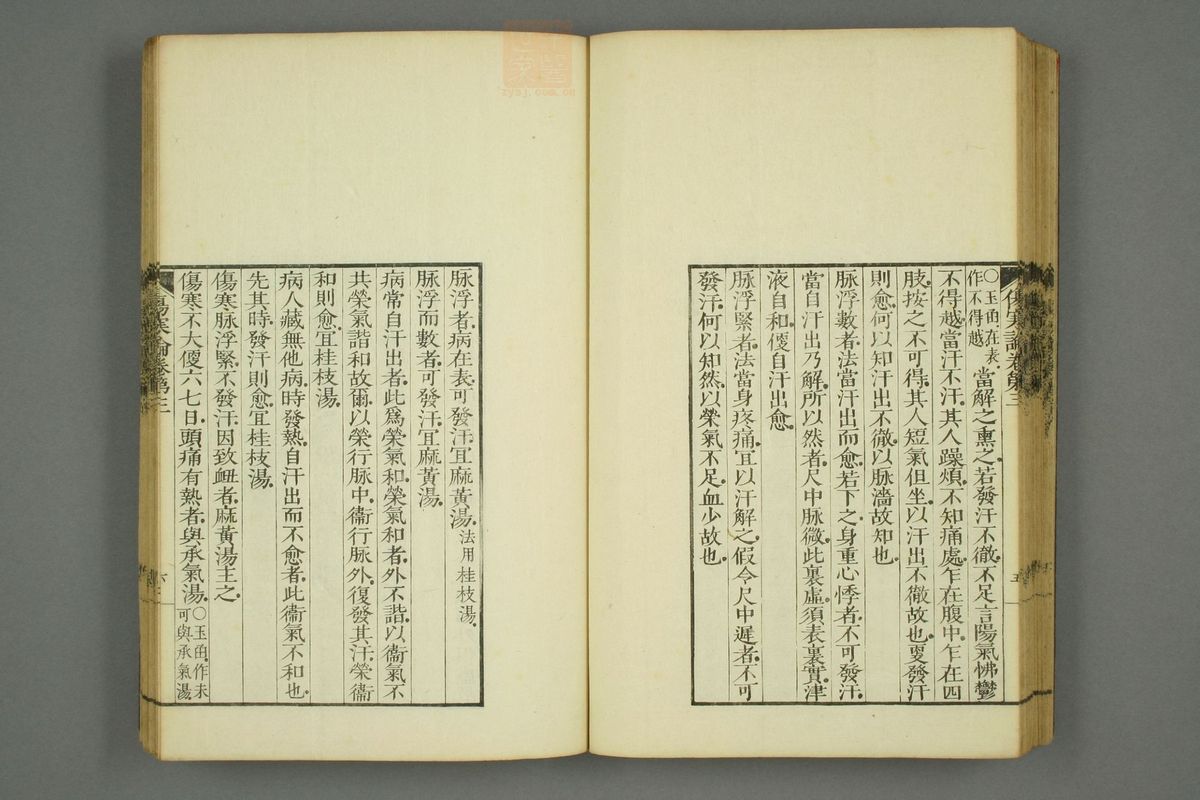 傷寒論卷第三
○玉函在表
作不得越
當解之熏之若發汗不徹不足言陽氣怫鬱
不得越當汗不汗其人躁煩不知痛處乍在腹中乍在四
肢按之不可得其人短氣但坐以汗出不徹故也更發汗
則愈何以知汗出不徹以脉濇故知也
脉浮數者法當汗出而愈若下之身重心悸者不可發汗
當自汗出乃解所以然者尺中脉微此裏虛須表裏實津
液自和便自汗出愈
脉浮緊者法當身疼痛宜以汗解之假令尺中遲者不可
發汗何以知然以榮氣不足血少故也
五
脉浮者病在表可發汗宜麻黃湯法用桂枝湯
脉浮而數者可發汗宜麻黃湯
病常自汗出者此爲榮氣和榮氣和者外不諧以衞氣不
共榮氣諧和故爾以榮行脉中衞行脉外復發其汗榮衞
和則愈宜桂枝湯
病人藏無他病時發熱自汗出而不愈者此衞氣不和也
先其時發汗則愈宜桂枝湯
傷寒脉浮緊不發汗因致衂者麻黃湯主之
傷寒不大便六七日頭痛有熱者與承氣湯
○玉函作未
可與承氣湯
傷寒論卷第三
六
zysj.com.cn